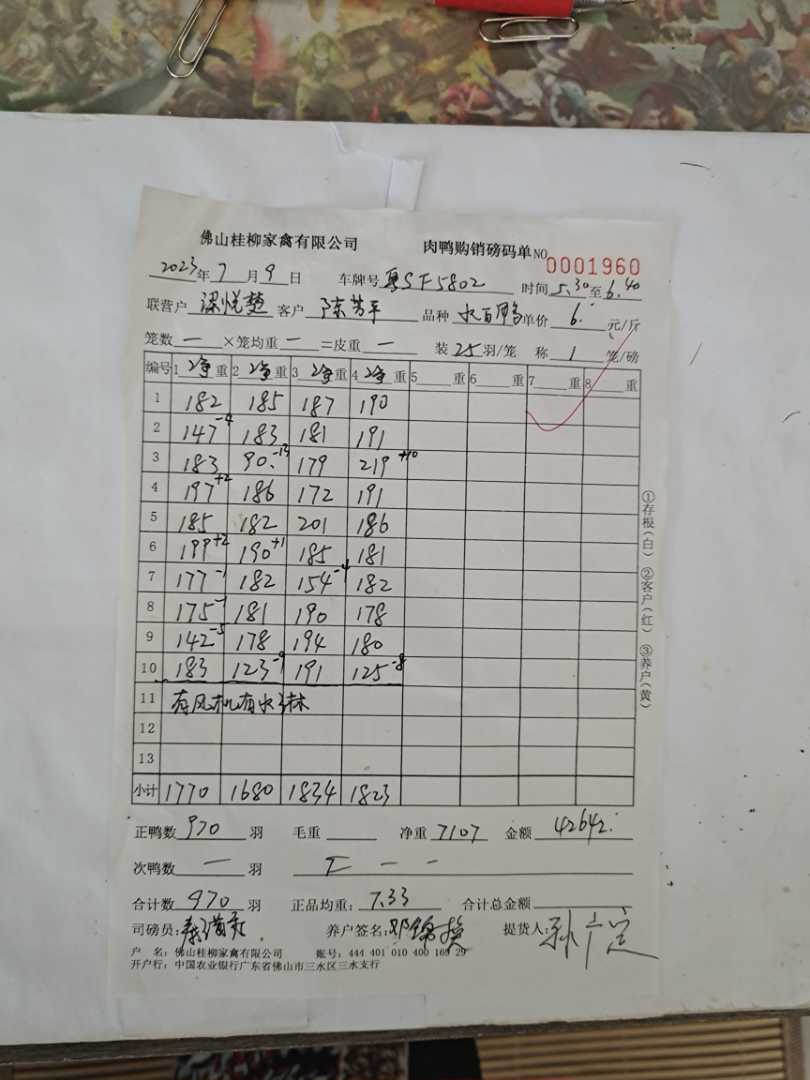 佛山桂柳家禽有限公司 肉鸭购销磅码单 NO 0001960
2023年7月9日 车牌号 粤SF5802 时间 5.30至6.40
联营户 梁悦楚 客户 陈芳平 品种 单价 6.- 元/斤
笼数 一 ×笼均重 一 =皮重 一 装25羽/笼 称 1 笼/磅
编号 1 净重 2 净重 3 净重 4 净重 5 重 6 重 7 重 8 重
1 182 185 187 190
2 147-4 183 181 191
3 183 90.-13 179 219+10
4 197+2 186 172 191
5 185 182 201 186
6 199+2 190+1 185 181
7 177-1 182 154-4 182
8 175-1 181 190 178
9 142-5 178 194 180
10 183 123-9 191 125-8
11 有风机有水淋
12
13
小计 1770 1680 1834 1823
①存根(白) ②客户(红) ③养户(黄)
正鸭数 970 羽 毛重 净重 7107 金额 42642.
次鸭数 一 羽
合计数 970 羽 正品均重: 7.33 合计总金额
司磅员: 养户签名: 邓锦换 提货人: 孙广定
户 名: 佛山桂柳家禽有限公司 账号: 444 401 010 400 169 29
开户行: 中国农业银行广东省佛山市三水区三水支行